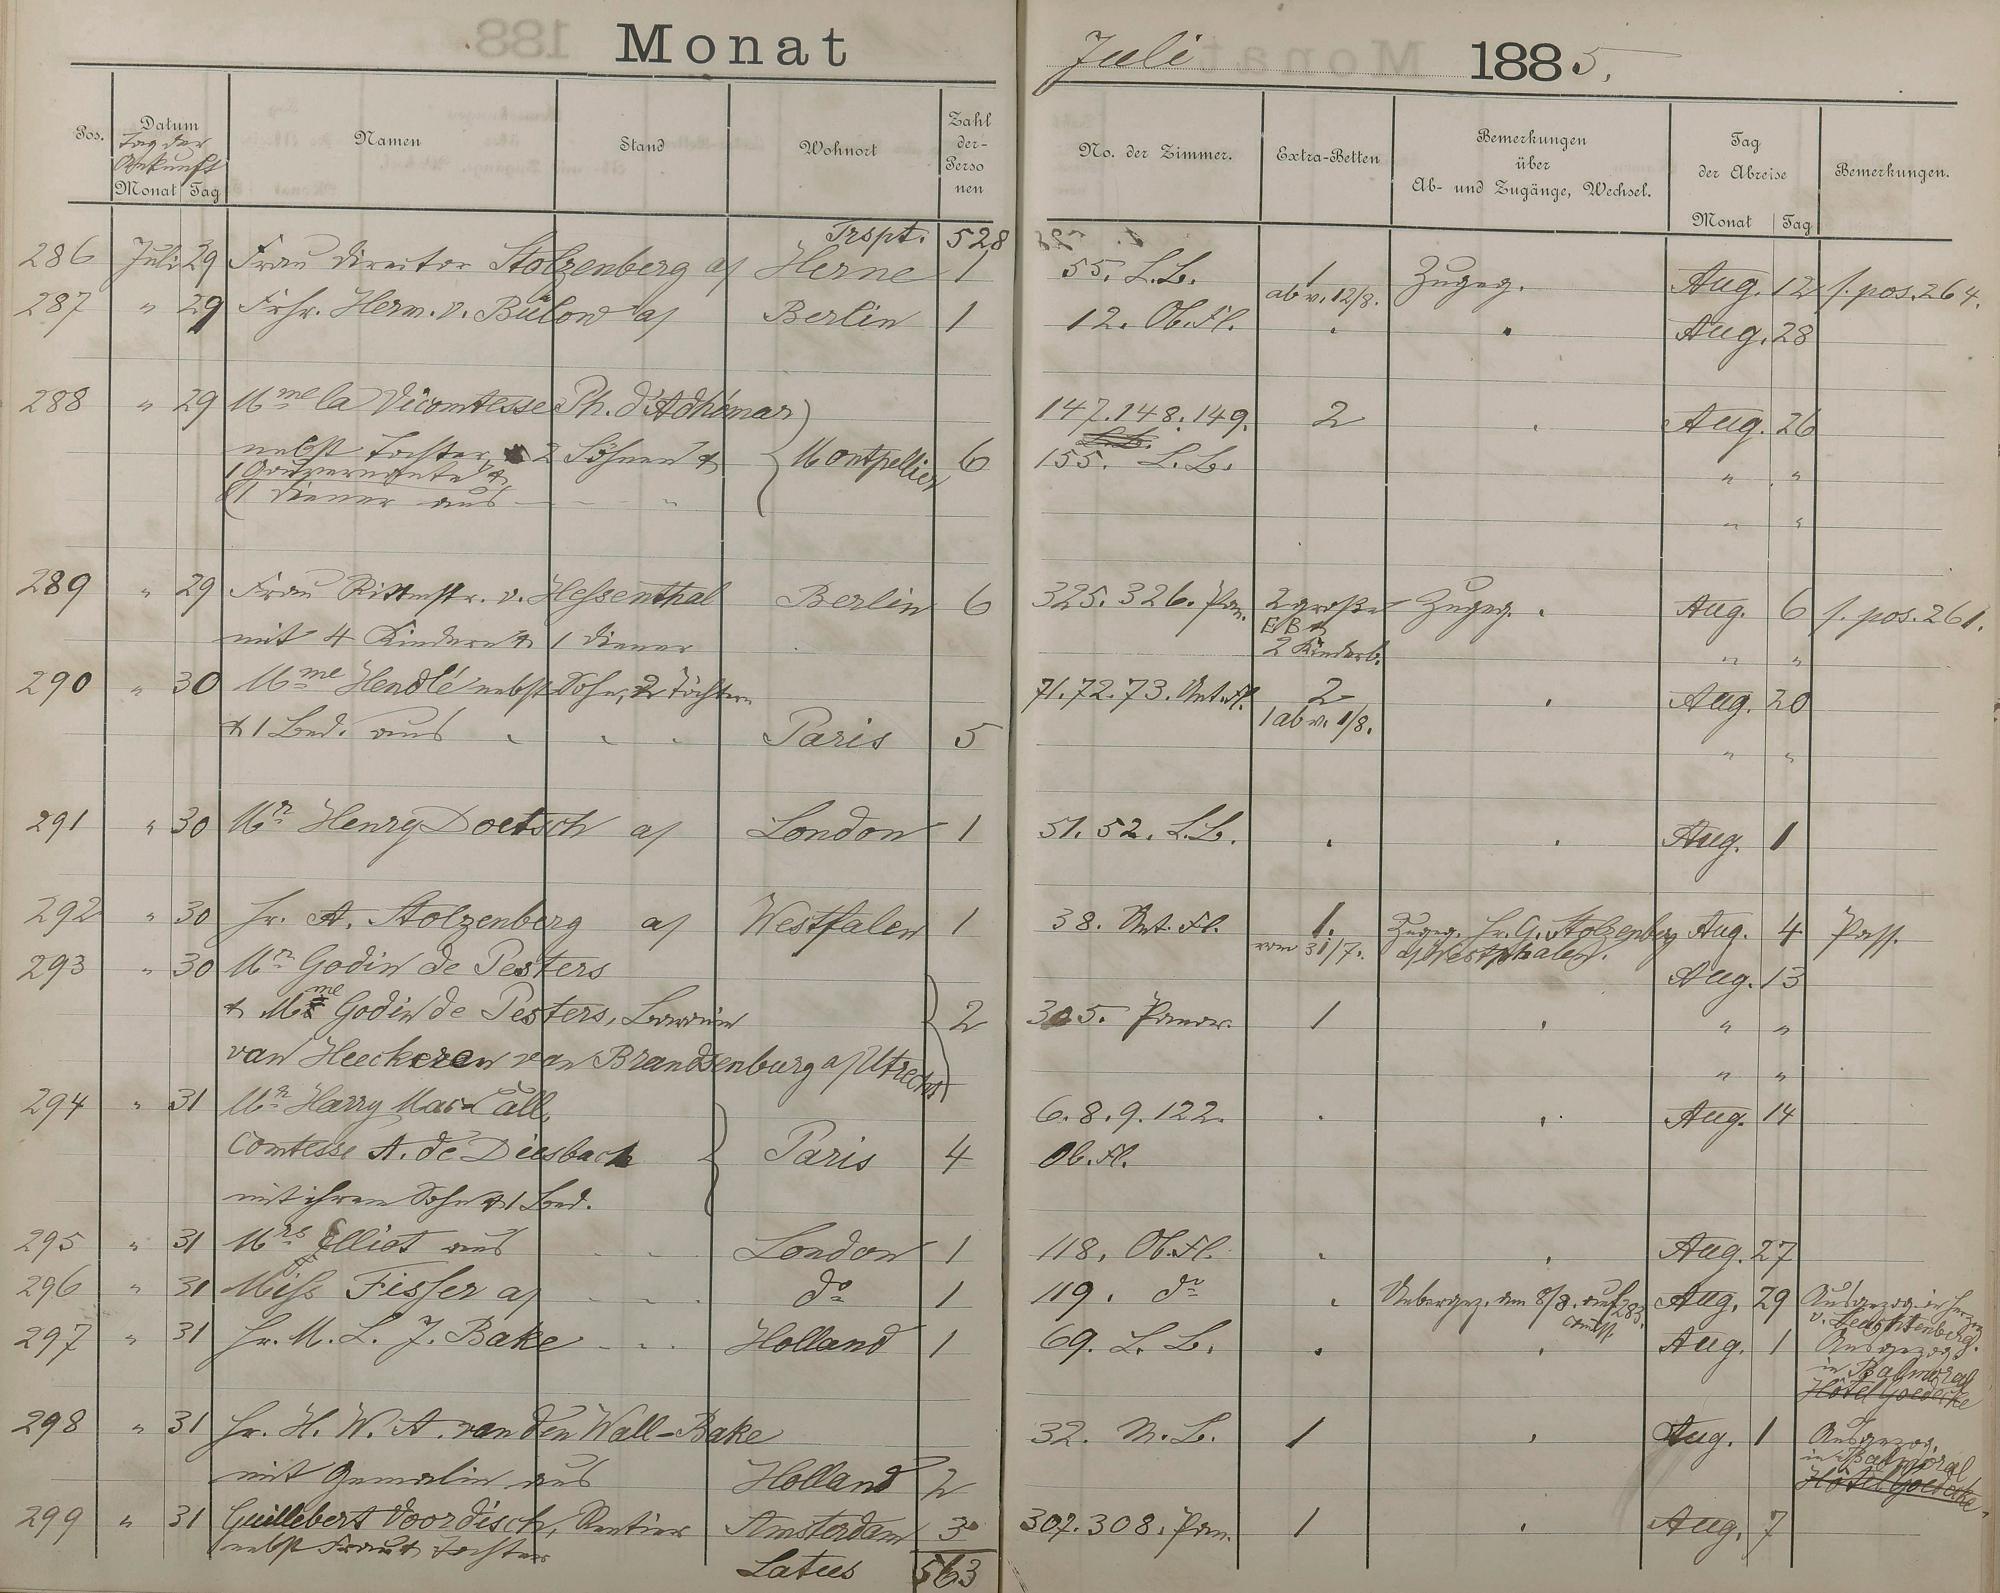 Monat Juli 1885.
Pos. Datum Namen Stand Wohnort Zahl der Perso nen No. der Zimmer. Extra-Betten Bemerkungen über Ab- und Zugänge, Wechsel. Tag der Abreise Bemerkungen.
Tag der Ankunft
Monat Tag Monat Tag
Trspt. 528
286 Juli 29 Frau Director Stolzenberg a/ Herne 1 55. L.B. 1 Zugeg. Aug. 12 s. pos. 264.
ab v. 12/8.
287 " 29 Frhr. Herm. v. Bülow a/ Berlin 1 12. Ob. Fl. . . Aug. 28
288 " 29 Mme la Vicomtesse Ph. d'Adhémar 147. 148. 149. 2 . Aug. 26
nebst Tochter, 2 Söhnen & Montpellier 6 155. L.B. " "
1 Gouvernante &
1 Diener aus " "
289 " 29 Frau Rittmstr. v. Hessenthal Berlin 6 325. 326. Pan. 2 große Zugeg. . Aug. 6 s. pos. 261.
E B &
mit 4 Kindern & 1 Diener 2 Kinderb. " "
290 " 30 Mme Hendlé nebst Sohn, 2 Töchtern 71. 72. 73. Unt. Fl. 2 . Aug. 20
& 1 Bed. aus Paris 5 1 ab v. 1/8. " "
291 " 30 Mr Henry Doetsch a/ London 1 51. 52. L.B. . . Aug. 1
292 " 30 Hr. A. Stolzenberg a/ Westfalen 1 38. Unt. Fl. 1. Zugeg. Hr. G. Stolzenberg Aug. 4 Pass.
vom 31/7. a/ Westphalen.
293 " 30 Mr Godin de Pesters Aug. 13
& Mme Godin de Pesters, Baronin 2 305. Panor. 1 . " "
van Heeckeren van Brandsenburg a/ Utrecht " "
294 " 31 Mr Harry Mac-Call, 6. 8. 9. 122. . . Aug. 14
Comtesse A. de Diesbach Paris 4 Ob. Fl.
mit ihrem Sohn & 1 Bed.
295 " 31 Mrs Elliot aus London 1 118. Ob. Fl. . . Aug. 27
296 " 31 Miss Fisser a/ do 1 119. do . Uebergez. am 8/8. auf 283. Aug. 29 Ausgezog. in Herzog
v. Leuchtenberg.
297 " 31 Hr. M. L. J. Bake Holland 1 69. L.B. . . Aug. 1 Ausgezog.
in Balmoral
Hôtel Goedecke
298 " 31 Hr. H. W. A. van den Wall-Bake 32. M.B. 1 . Aug. 1 Ausgezog.
in Balmoral
mit Gemalin aus Holland 2 Hôtel Goedecke
299 " 31 Guillebert Voordisch, Rentier Amsterdam 3 307. 308. Pan. 1 . Aug. 7
nebst Frau & Tochter
Latus 563